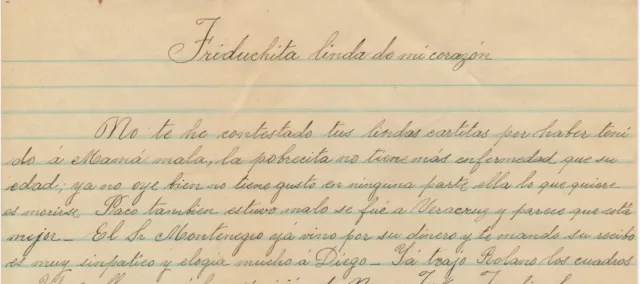 Friduchita linda de mi corazón
No te he contestado tus lindas cartitas por haber teni
do á Mamá mala, la pobrecita no tiene más enfermedad que su
edad; ya no oye bien no tiene gusto en ninguna parte ella lo que quiere
es morirse Paco tambien estuvo malo se fué a Veracruz y parece que está
mejor_ El Sr Montenegro yá vino por su dinero y te mando su recibo
es muy sinpatico y elogia mucho a Diego_ Yá trajo Rolano los cuadros